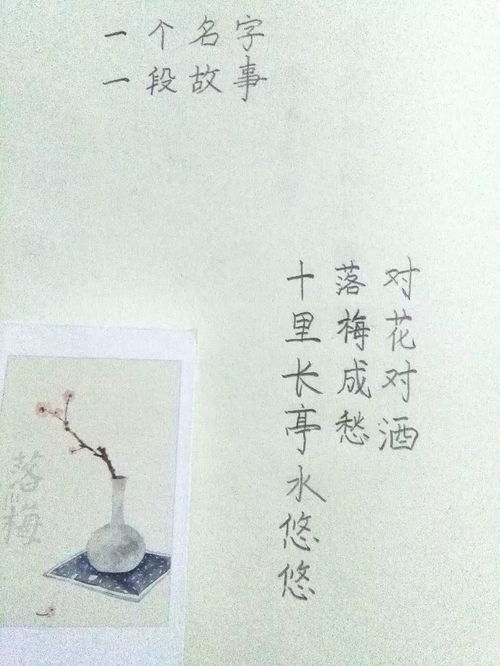 一个名字
一段故事
对花对酒
落梅成愁
十里长亭水悠悠
落梅